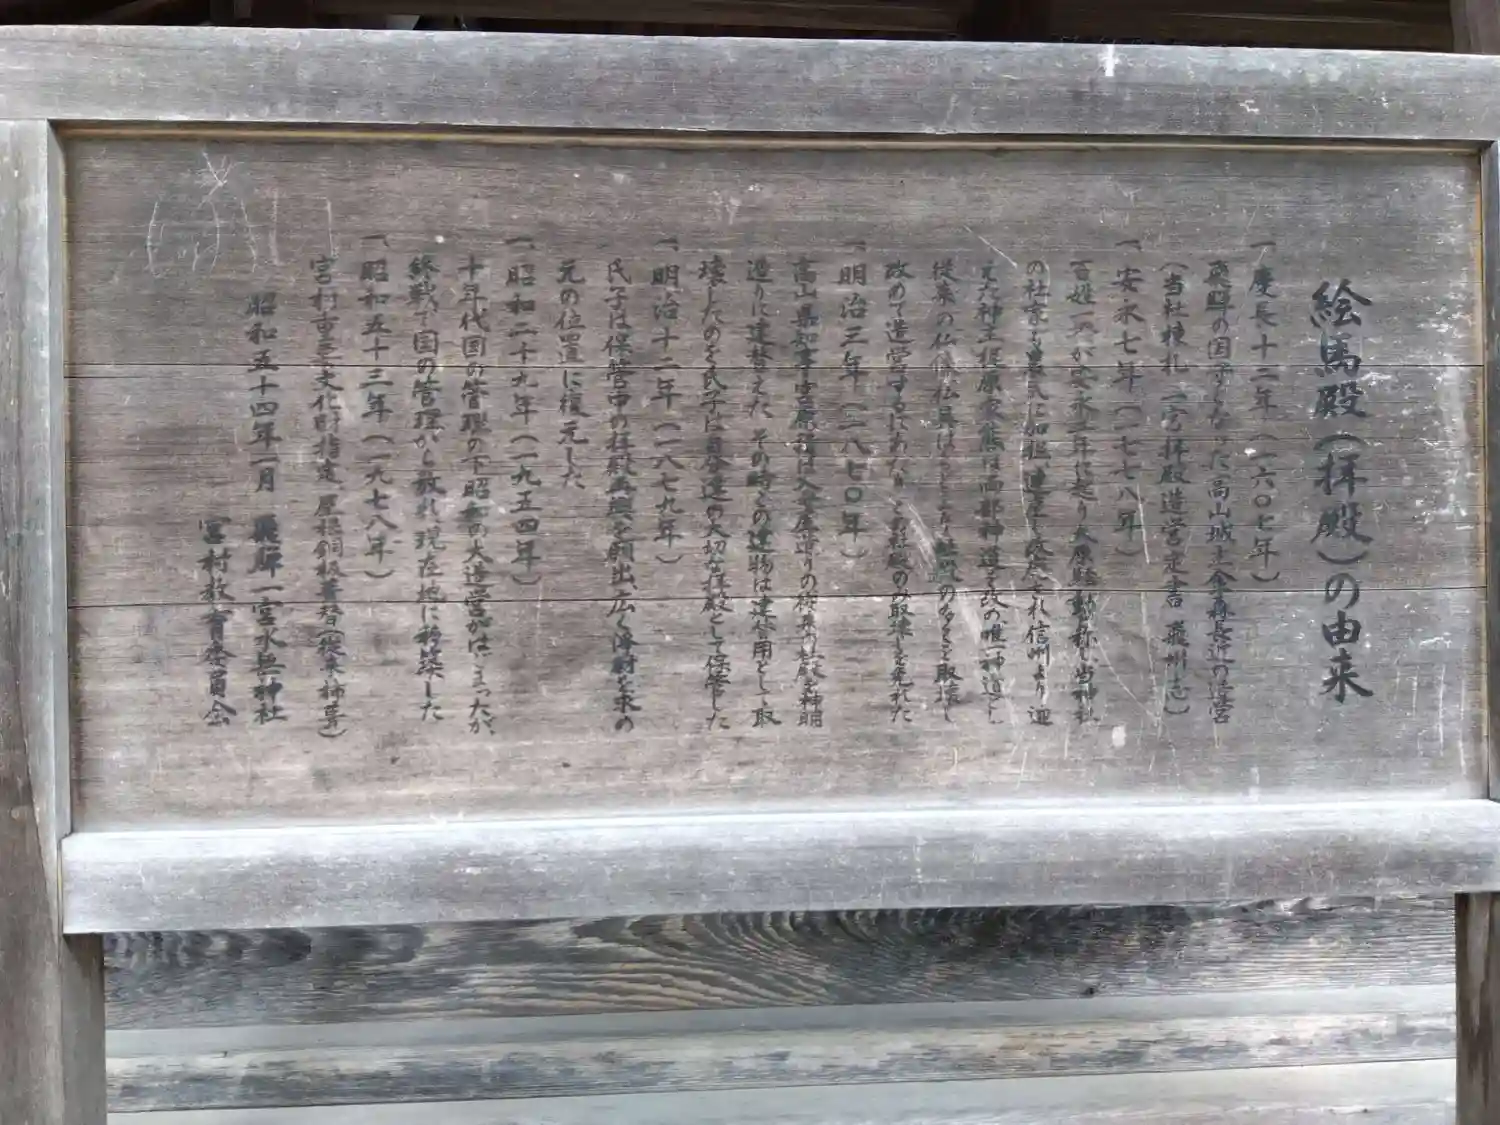 絵馬殿(拝殿)の由来
一、慶長十二年(一六〇七年)
飛騨の国守となった高山城主金森長近の造営
(当社棟札、一宮拝殿造営定書、飛州志)
一、安永七年(一七七八年)
百姓一揆が安永二年に起り大原騒動と称し当神社
の社家も農民に加担、連座し処罰され信州より迎
えた神主梶原家熊は両部神道を改め唯一神道とし
従来の仏像仏具はもとより社殿のすべてを取壊し
改めて造営するにあたりこの社殿のみ取壊しを免れた
一、明治三年(一八七〇年)
高山県知事宮原積は入母屋造りの従来の社殿を神明
造りに建替えた その時この建物は建替用として取
壊したのを氏子は自分達の大切な拝殿として保管した
一、明治十二年(一八七九年)
氏子は保管中の拝殿再興を願出、広く浄財を求め
元の位置に復元した
一、昭和二十九年(一九五四年)
十年代国の管理の下、昭和の大造営がはじまったが、
終戦で国の管理から放れ、現在地に移築した
一、昭和五十三年(一九七八年)
宮村重要文化財指定、屋根銅板葺替(従来柿葺)
昭和五十四年一月 飛騨一宮水無神社
宮村教育委員会